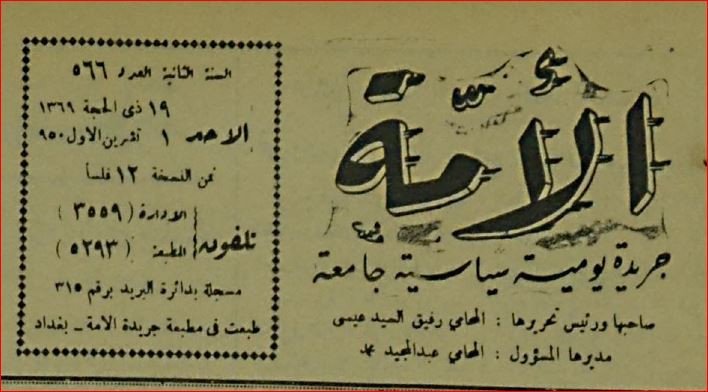 الأمة
جريدة يومية سياسية جامعة
صاحبها ورئيس تحريرها : المحامي رفيق السيد عيسى
مديرها المسؤول : المحامي عبدالمجيد محمد
السنة الثانية العدد ٥٦٦
١٩ ذي الحجة ١٣٦٩
الاحد ١ تشرين الاول ٩٥٠
ثمن النسخة ١٢ فلساً
تلفون الادارة ( ٣٥٥٩ )
المطبعة ( ٥٢٩٣ )
مسجلة بدائرة البريد برقم ٣١٥
طبعت في مطبعة جريدة الامة ـ بغداد